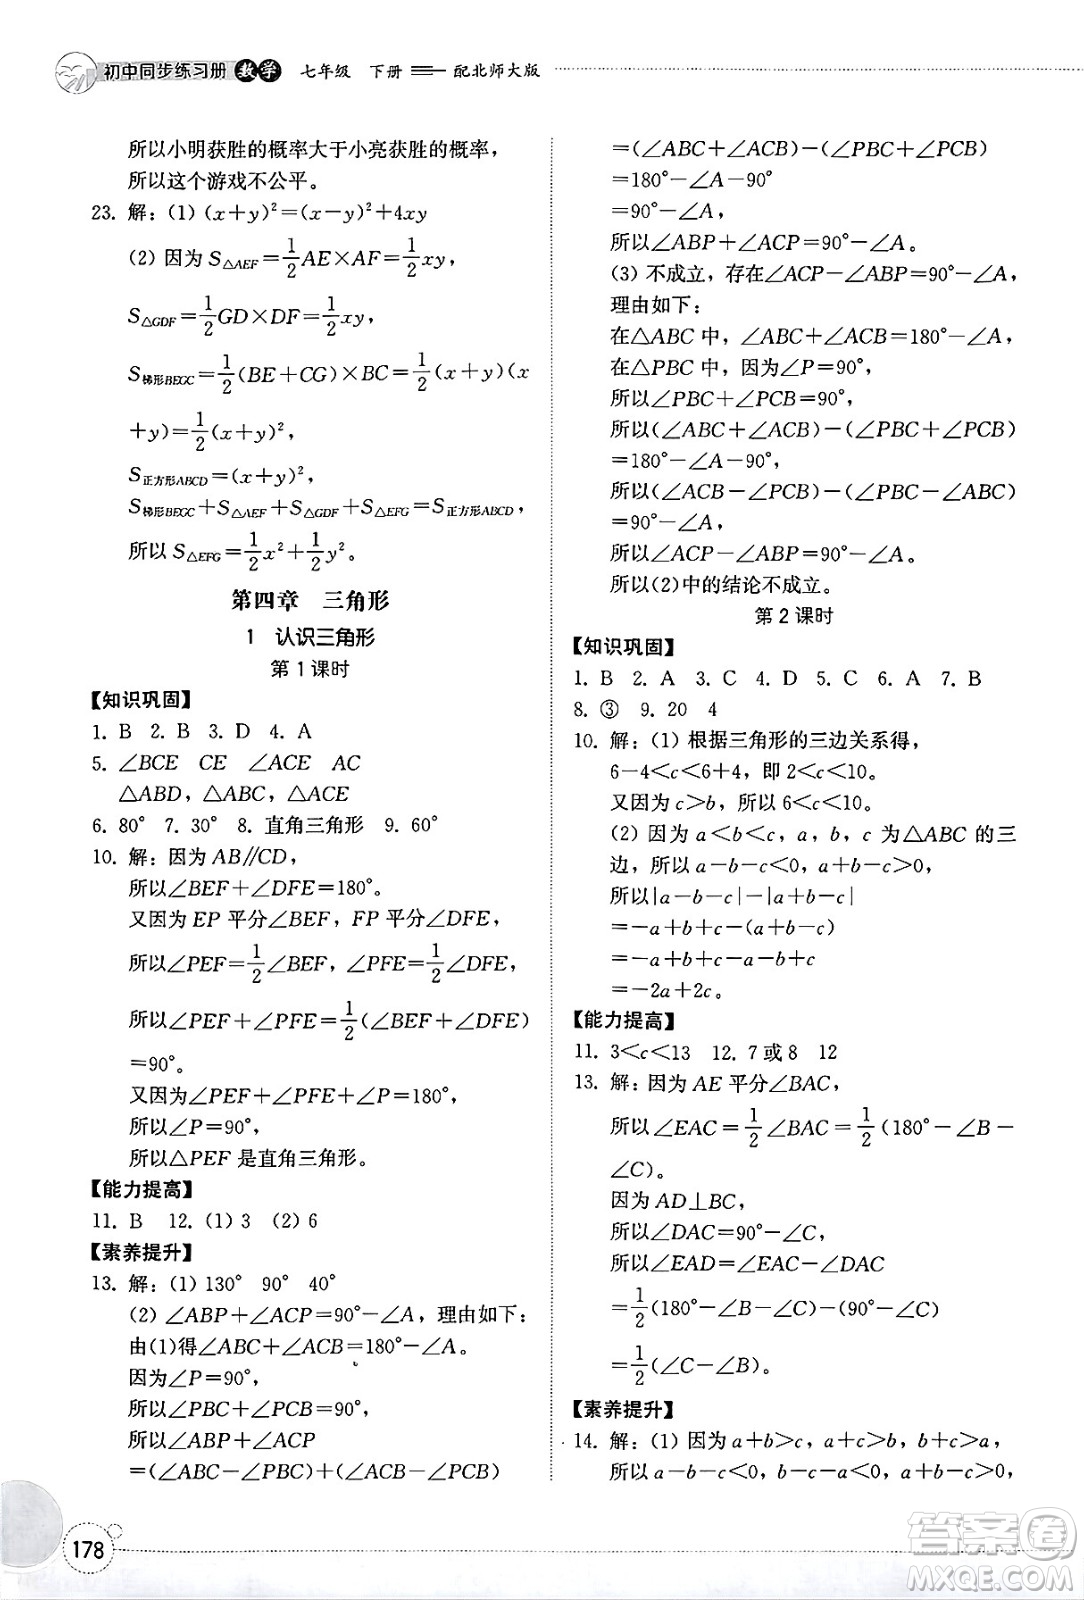 初中同步练习册 数学 七年级 下册 —— 配北师大版
所以小明获胜的概率大于小亮获胜的概率,
所以这个游戏不公平。
23. 解:(1)(x+y)²=(x-y)²+4xy
(2)因为S△AEF=1/2AE×AF=1/2xy,
S△GDF=1/2GD×DF=1/2xy,
S梯形BEGC=1/2(BE+CG)×BC=1/2(x+y)(x
+y)=1/2(x+y)²,
S正方形ABCD=(x+y)²,
S梯形BEGC+S△AEF+S△GDF+S△EFG=S正方形ABCD,
所以S△EFG=1/2x²+1/2y²。
第四章 三角形
1 认识三角形
第1课时
【知识巩固】
1. B 2. B 3. D 4. A
5. ∠BCE CE ∠ACE AC
△ABD,△ABC,△ACE
6. 80° 7. 30° 8. 直角三角形 9. 60°
10. 解:因为AB∥CD,
所以∠BEF+∠DFE=180°。
又因为EP平分∠BEF,FP平分∠DFE,
所以∠PEF=1/2∠BEF,∠PFE=1/2∠DFE,
所以∠PEF+∠PFE=1/2(∠BEF+∠DFE)
=90°。
又因为∠PEF+∠PFE+∠P=180°,
所以∠P=90°,
所以△PEF是直角三角形。
【能力提高】
11. B 12. (1)3 (2)6
【素养提升】
13. 解:(1)130° 90° 40°
(2)∠ABP+∠ACP=90°-∠A,理由如下:
由(1)得∠ABC+∠ACB=180°-∠A。
因为∠P=90°,
所以∠PBC+∠PCB=90°,
所以∠ABP+∠ACP
=(∠ABC-∠PBC)+(∠ACB-∠PCB)
=(∠ABC+∠ACB)-(∠PBC+∠PCB)
=180°-∠A-90°
=90°-∠A,
所以∠ABP+∠ACP=90°-∠A。
(3)不成立,存在∠ACP-∠ABP=90°-∠A,
理由如下:
在△ABC中,∠ABC+∠ACB=180°-∠A,
在△PBC中,因为∠P=90°,
所以∠PBC+∠PCB=90°,
所以(∠ABC+∠ACB)-(∠PBC+∠PCB)
=180°-∠A-90°,
所以(∠ACB-∠PCB)-(∠PBC-∠ABC)
=90°-∠A,
所以∠ACP-∠ABP=90°-∠A,
所以(2)中的结论不成立。
第2课时
【知识巩固】
1. B 2. A 3. C 4. D 5. C 6. A 7. B
8. ③ 9. 20 4
10. 解:(1)根据三角形的三边关系得,
6-4<c<6+4,即2<c<10。
又因为c>b,所以6<c<10。
(2)因为a<b<c,a,b,c为△ABC的三
边,所以a-b-c<0,a+b-c>0,
所以|a-b-c|-|a+b-c|
=-a+b+c-(a+b-c)
=-a+b+c-a-b+c
=-2a+2c。
【能力提高】
11. 3<c<13 12. 7或8 12
13. 解:因为AE平分∠BAC,
所以∠EAC=1/2∠BAC=1/2(180°-∠B-
∠C)。
因为AD⊥BC,
所以∠DAC=90°-∠C,
所以∠EAD=∠EAC-∠DAC
=1/2(180°-∠B-∠C)-(90°-∠C)
=1/2(∠C-∠B)。
【素养提升】
14. 解:(1)因为a+b>c,a+c>b,b+c>a,
所以a-b-c<0,b-c-a<0,a+b-c>0,
178
答案圈
MXQE.COM